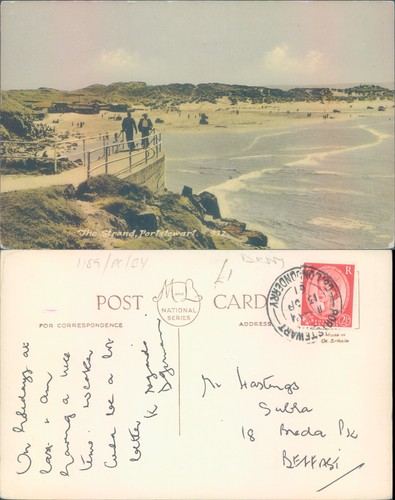 The Strand, Portstewart
1189/A/24
£1
DERRY
POST CARD
M&B
NATIONAL
SERIES
FOR CORRESPONDENCE
ADDRESS
PORTSTEWART
CO. LONDONDERRY
R
On holidays at
last & am
having a nice
time. Weather
could be a lot
better
regards
Mr Hastings
Sulha
18 Breda Pk
BELFAST